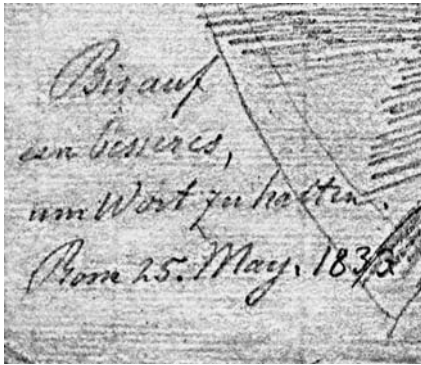 Bis auf
ein besseres,
um Wort zu halten.
Rom 25. May. 1833